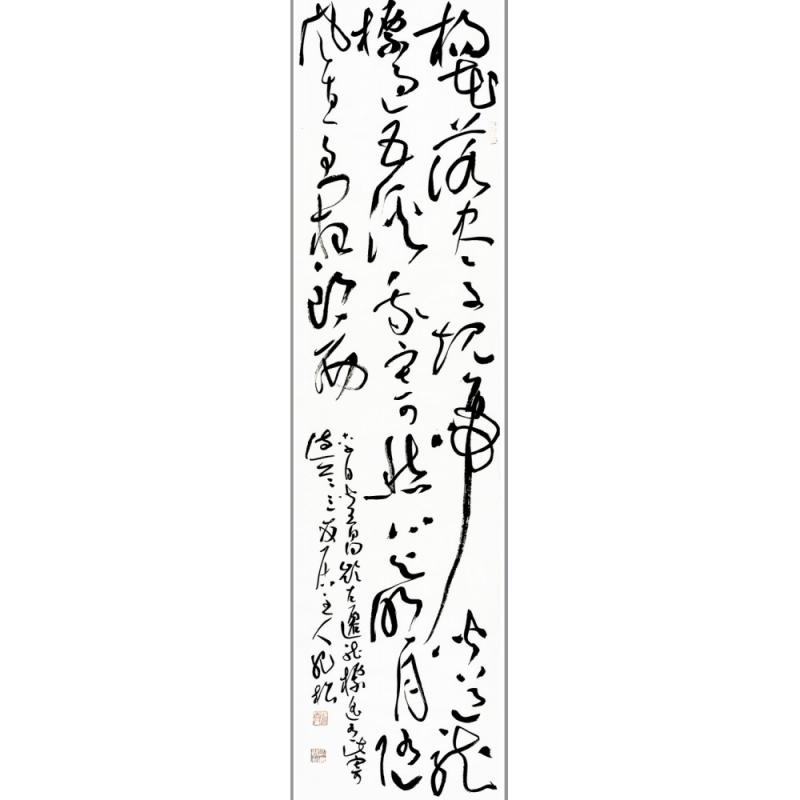 楊花落盡子規啼聞道龍
標過五溪我寄愁心與明月隨
風直到夜郎西
李白聞王昌齡左遷龍標遙有此寄
居主人